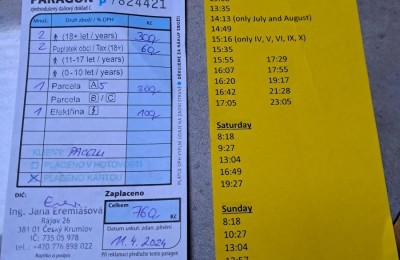 PARAGON
p 7824421
zjednodušený daňový doklad č.
Množ. Druh zboží / % DPH Kč
2 (18+ let / years) 300
2 Poplatek obci / Tax (18+) 60
(11-17 let / years)
(0-10 let / years)
1 Parcela A 5 300
Parcela B / C
1 Elektřina 100
PLACENO V HOTOVOSTI
X PLACENO KARTOU
DĚKUJEME ZA NÁKUP ZBOŽÍ
DIČ:
Ing. Jana Eremiášová
Rájav 26
381 01 Český Krumlov
IČ: 735 05 978
tel.: +420 776 898 022
Razítko a podpis
Zaplaceno
Celkem 760 Kč
Datum uskut. zdan. plnění
11.4.2024
Při reklamaci předložte tento paragon
13:35
14:13 (only July and August)
14:49
15:16 (only IV, V, VI, IX, X)
15:35
15:55 17:29
16:07 17:55
16:20 19:17
16:42 21:28
17:05 23:05
Saturday
8:18
9:27
13:04
16:49
19:27
Sunday
8:18
10:27
13:04